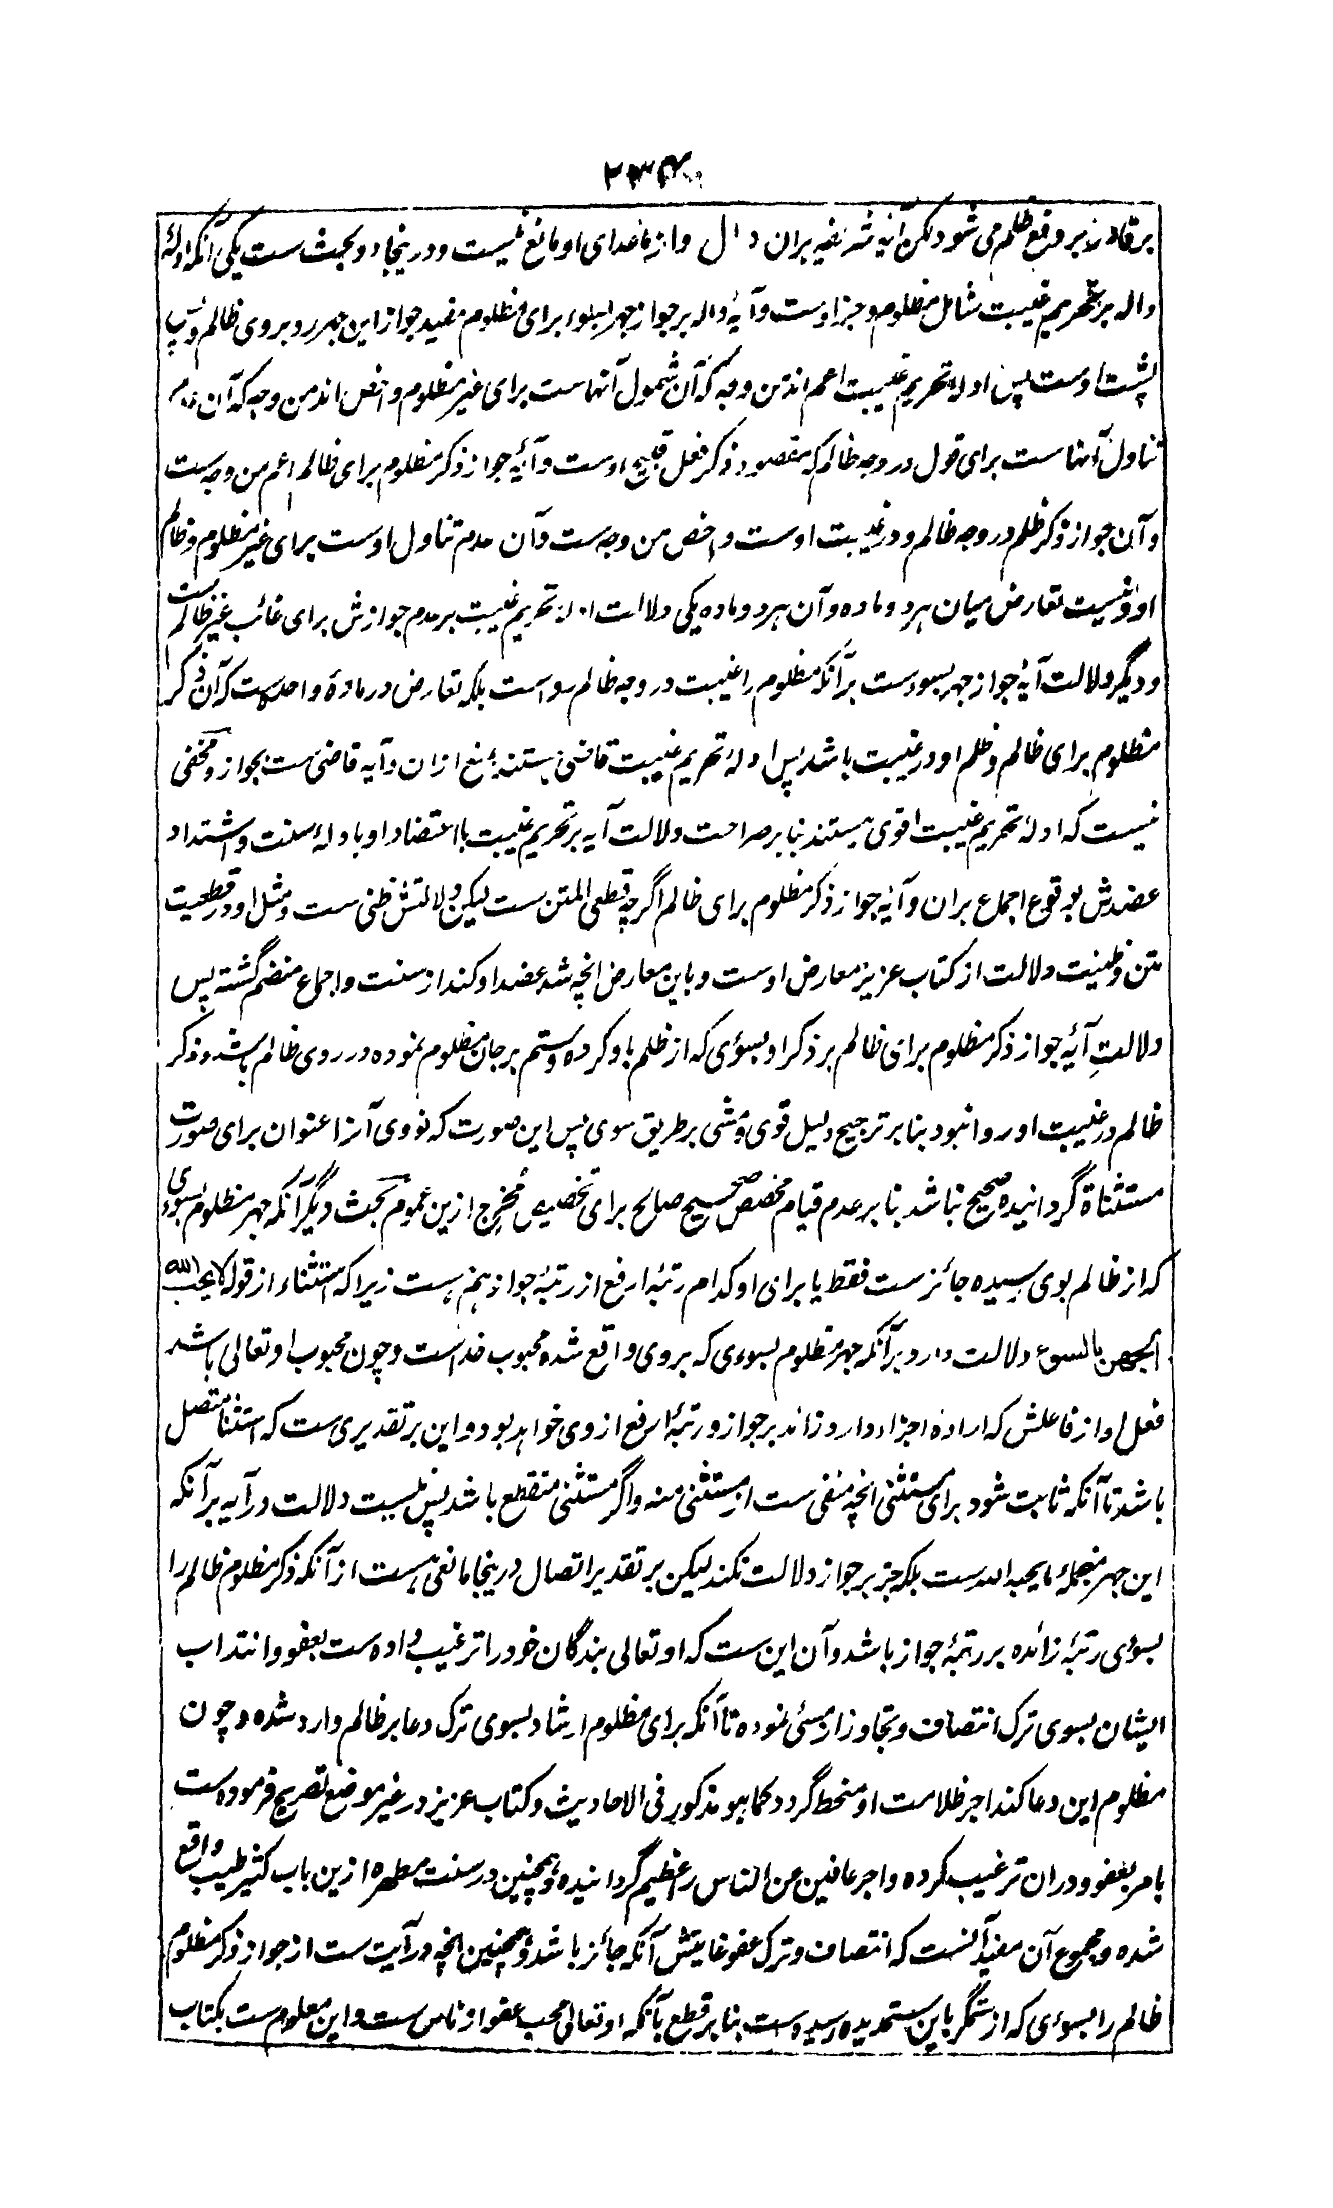 ۲۳۴
بر قادر بر رفع ظلم می شود لکن آیه شریفه بران دال و از ماعدای او مانع نیست و درینجا دو بحث ست یکی آنکه ادلهٔ
داله بر تحریم غیبت شامل مظلوم و جز اوست و آیهٔ داله بر جواز جهر بسوء برای مظلوم مفید جواز این جهر رو بروی ظالم و پس
پشت اوست پس ادلهٔ تحریم غیبت اعم اند من وجه که آن شمول آنهاست برای غیر مظلوم و اخص اند من وجه که آن عدم
تناول آنهاست برای قول در وجه ظالم که مقصود ذکر فعل قبیح اوست و آیهٔ جواز ذکر مظلوم برای ظالم اعم من وجه ست
و آن جواز ذکر ظلم در وجه ظالم و در غیبت اوست و اخص من وجه ست و آن عدم تناول اوست برای غیر مظلوم و ظالم
او و نیست تعارض میان هر دو ماده و آن هر دو ماده یکی دلالت ادلهٔ تحریم غیبت بر عدم جوازش برای غائب غیر ظالم ست
و دیگر دلالت آیهٔ جواز جهر بسوء ست بر آنکه مظلوم را غیبت در وجه ظالم رواست بلکه تعارض در مادهٔ واحده ست که آن ذکر
مظلوم برای ظالم و ظلم او در غیبت باشد پس ادلهٔ تحریم غیبت قاضی هستند بمنع ازان و آیه قاضی ست بجواز و مخفی
نیست که ادلهٔ تحریم غیبت اقوی هستند بنا بر صراحت دلالت آیه بر تحریم غیبت با اعتضاد او با دلهٔ سنت و اشتداد
عضدش بوقوع اجماع بران و آیهٔ جواز ذکر مظلوم برای ظالم اگرچه قطعی المتن ست لیکن دلالتش ظنی ست و مثل او در قطعیت
متن و ظنیت دلالت از کتاب عزیز معارض اوست و باین معارض انچه شد عضد او کند از سنت و اجماع منضم گشته پس
دلالتِ آیهٔ جواز ذکر مظلوم برای ظالم بر ذکر او بسوئی که از ظلم باو کرده و ستم بر جان مظلوم نموده در روی ظالم باشد و ذکر
ظالم در غیبت او روا نبود بنا بر ترجیح دلیل قوی و مشی بر طریق سوی پس این صورت که نووی آنرا عنوان برای صورت
مستثناة گردانیده صحیح نباشد بنا بر عدم قیام مخصص صحیح صالح برای تخصیص مُخرج ازین عموم بحث دیگر آنکه جهر مظلوم بسوئی
که از ظالم بوی رسیده جائز ست فقط یا برای او کدام رتبهٔ ارفع از رتبهٔ جواز هم هست زیرا که استثناء از قوله لا یحب الله
الجهر بالسوء دلالت دارد بر آنکه جهر مظلوم بسوءی که بروی واقع شده محبوب خداست و چون محبوب او تعالی باشد
فعل او از فاعلش که ارادهٔ اجزاء دارد زائد بر جواز و رتبهٔ ارفع از وی خواهد بود و این بر تقدیری ست که استثنا متصل
باشد تا آنکه ثابت شود برای مستثنی انچه منفی ست از مستثنی منه و اگر مستثنی منقطع باشد پس نیست دلالت در آیه بر آنکه
این جهر منجملهٔ ما یحبه الله ست بلکه جز بر جواز دلالت نکند لیکن بر تقدیر اتصال درینجا مانعی هست از آنکه ذکر مظلوم ظالم را
بسوئی رتبهٔ زائده بر رتبهٔ جواز باشد و آن این ست که او تعالی بندگان خود را ترغیب داده ست بعفو و انتداب
ایشان بسوی ترک انتصاف و تجاوز از مسئ نموده تا آنکه برای مظلوم ارشاد بسوی ترک دعا بر ظالم وارد شده و چون
مظلوم این دعا کند اجر ظلامت او منحط گردد کما هو مذکور فی الاحادیث و کتاب عزیز در غیر موضع تصریح فرموده ست
بامر بعفو و دران ترغیب کرده و اجر عافین عن الناس را عظیم گردانیده و همچنین در سنت مطهره ازین باب کثیر طیب واقع
شده و مجموع آن مفید آنست که انتصاف و ترک عفو غایتش آنکه جائز باشد و همچنین انچه در آیت ست از جواز ذکر مظلوم
ظالم را بسوئی که از ستمگر باین ستمدیده رسیده ست بنا بر قطع بآنکه او تعالی محب عفو از ناس ست و این معلوم ست بکتاب